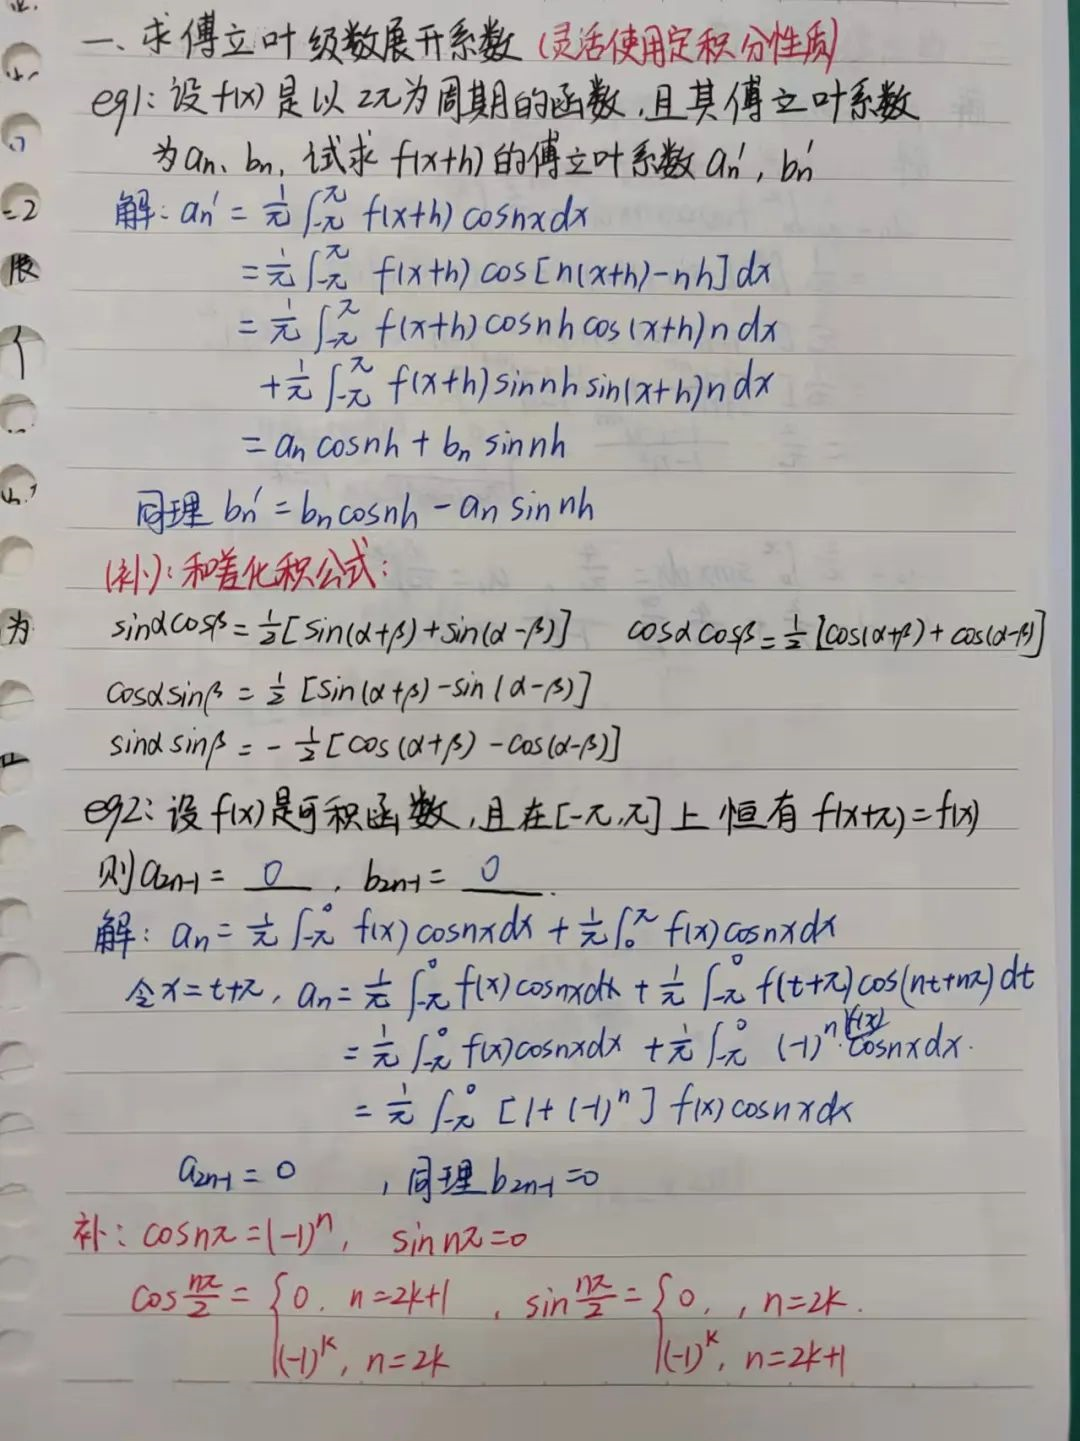 一、求傅立叶级数展开系数(灵活使用定积分性质)
eg1:设f(x)是以2π为周期的函数,且其傅立叶系数
为an、bn,试求f(x+h)的傅立叶系数an′,bn′
解:an′=1/π∫_{-π}^{π} f(x+h)cosnxdx
=1/π∫_{-π}^{π} f(x+h)cos[n(x+h)-nh]dx
=1/π∫_{-π}^{π} f(x+h)cosnhcos(x+h)ndx
+1/π∫_{-π}^{π} f(x+h)sinnhsin(x+h)ndx
=an cosnh+bn sinnh
同理bn′=bncosnh-an sinnh
(补):和差化积公式:
sinαcosβ=1/2[sin(α+β)+sin(α-β)] cosαcosβ=1/2[cos(α+β)+cos(α-β)]
cosαsinβ=1/2[sin(α+β)-sin(α-β)]
sinαsinβ=-1/2[cos(α+β)-cos(α-β)]
eg2:设f(x)是可积函数,且在[-π,π]上恒有f(x+π)=f(x)
则a2n-1=0,b2n-1=0.
解:an=1/π∫_{-π}^{0} f(x)cosnxdx+1/π∫_{0}^{π} f(x)cosnxdx
令x=t+π,an=1/π∫_{-π}^{0} f(x)cosnxdx+1/π∫_{-π}^{0} f(t+π)cos(nt+nπ)dt
=1/π∫_{-π}^{0} f(x)cosnxdx+1/π∫_{-π}^{0} (-1)^n·f(x)cosnxdx.
=1/π∫_{-π}^{0} [1+(-1)^n]f(x)cosnxdx
a2n-1=0,同理b2n-1=0
补:cosnπ=(-1)^n, sinnπ=0
cos nπ/2={0, n=2k+1, sin nπ/2={0,, n=2k.
(-1)^k, n=2k (-1)^k, n=2k+1
=2
限
个
为